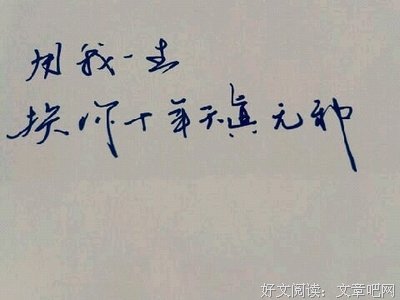 用我一生
换你十年天真无邪
好文阅读：文章吧网